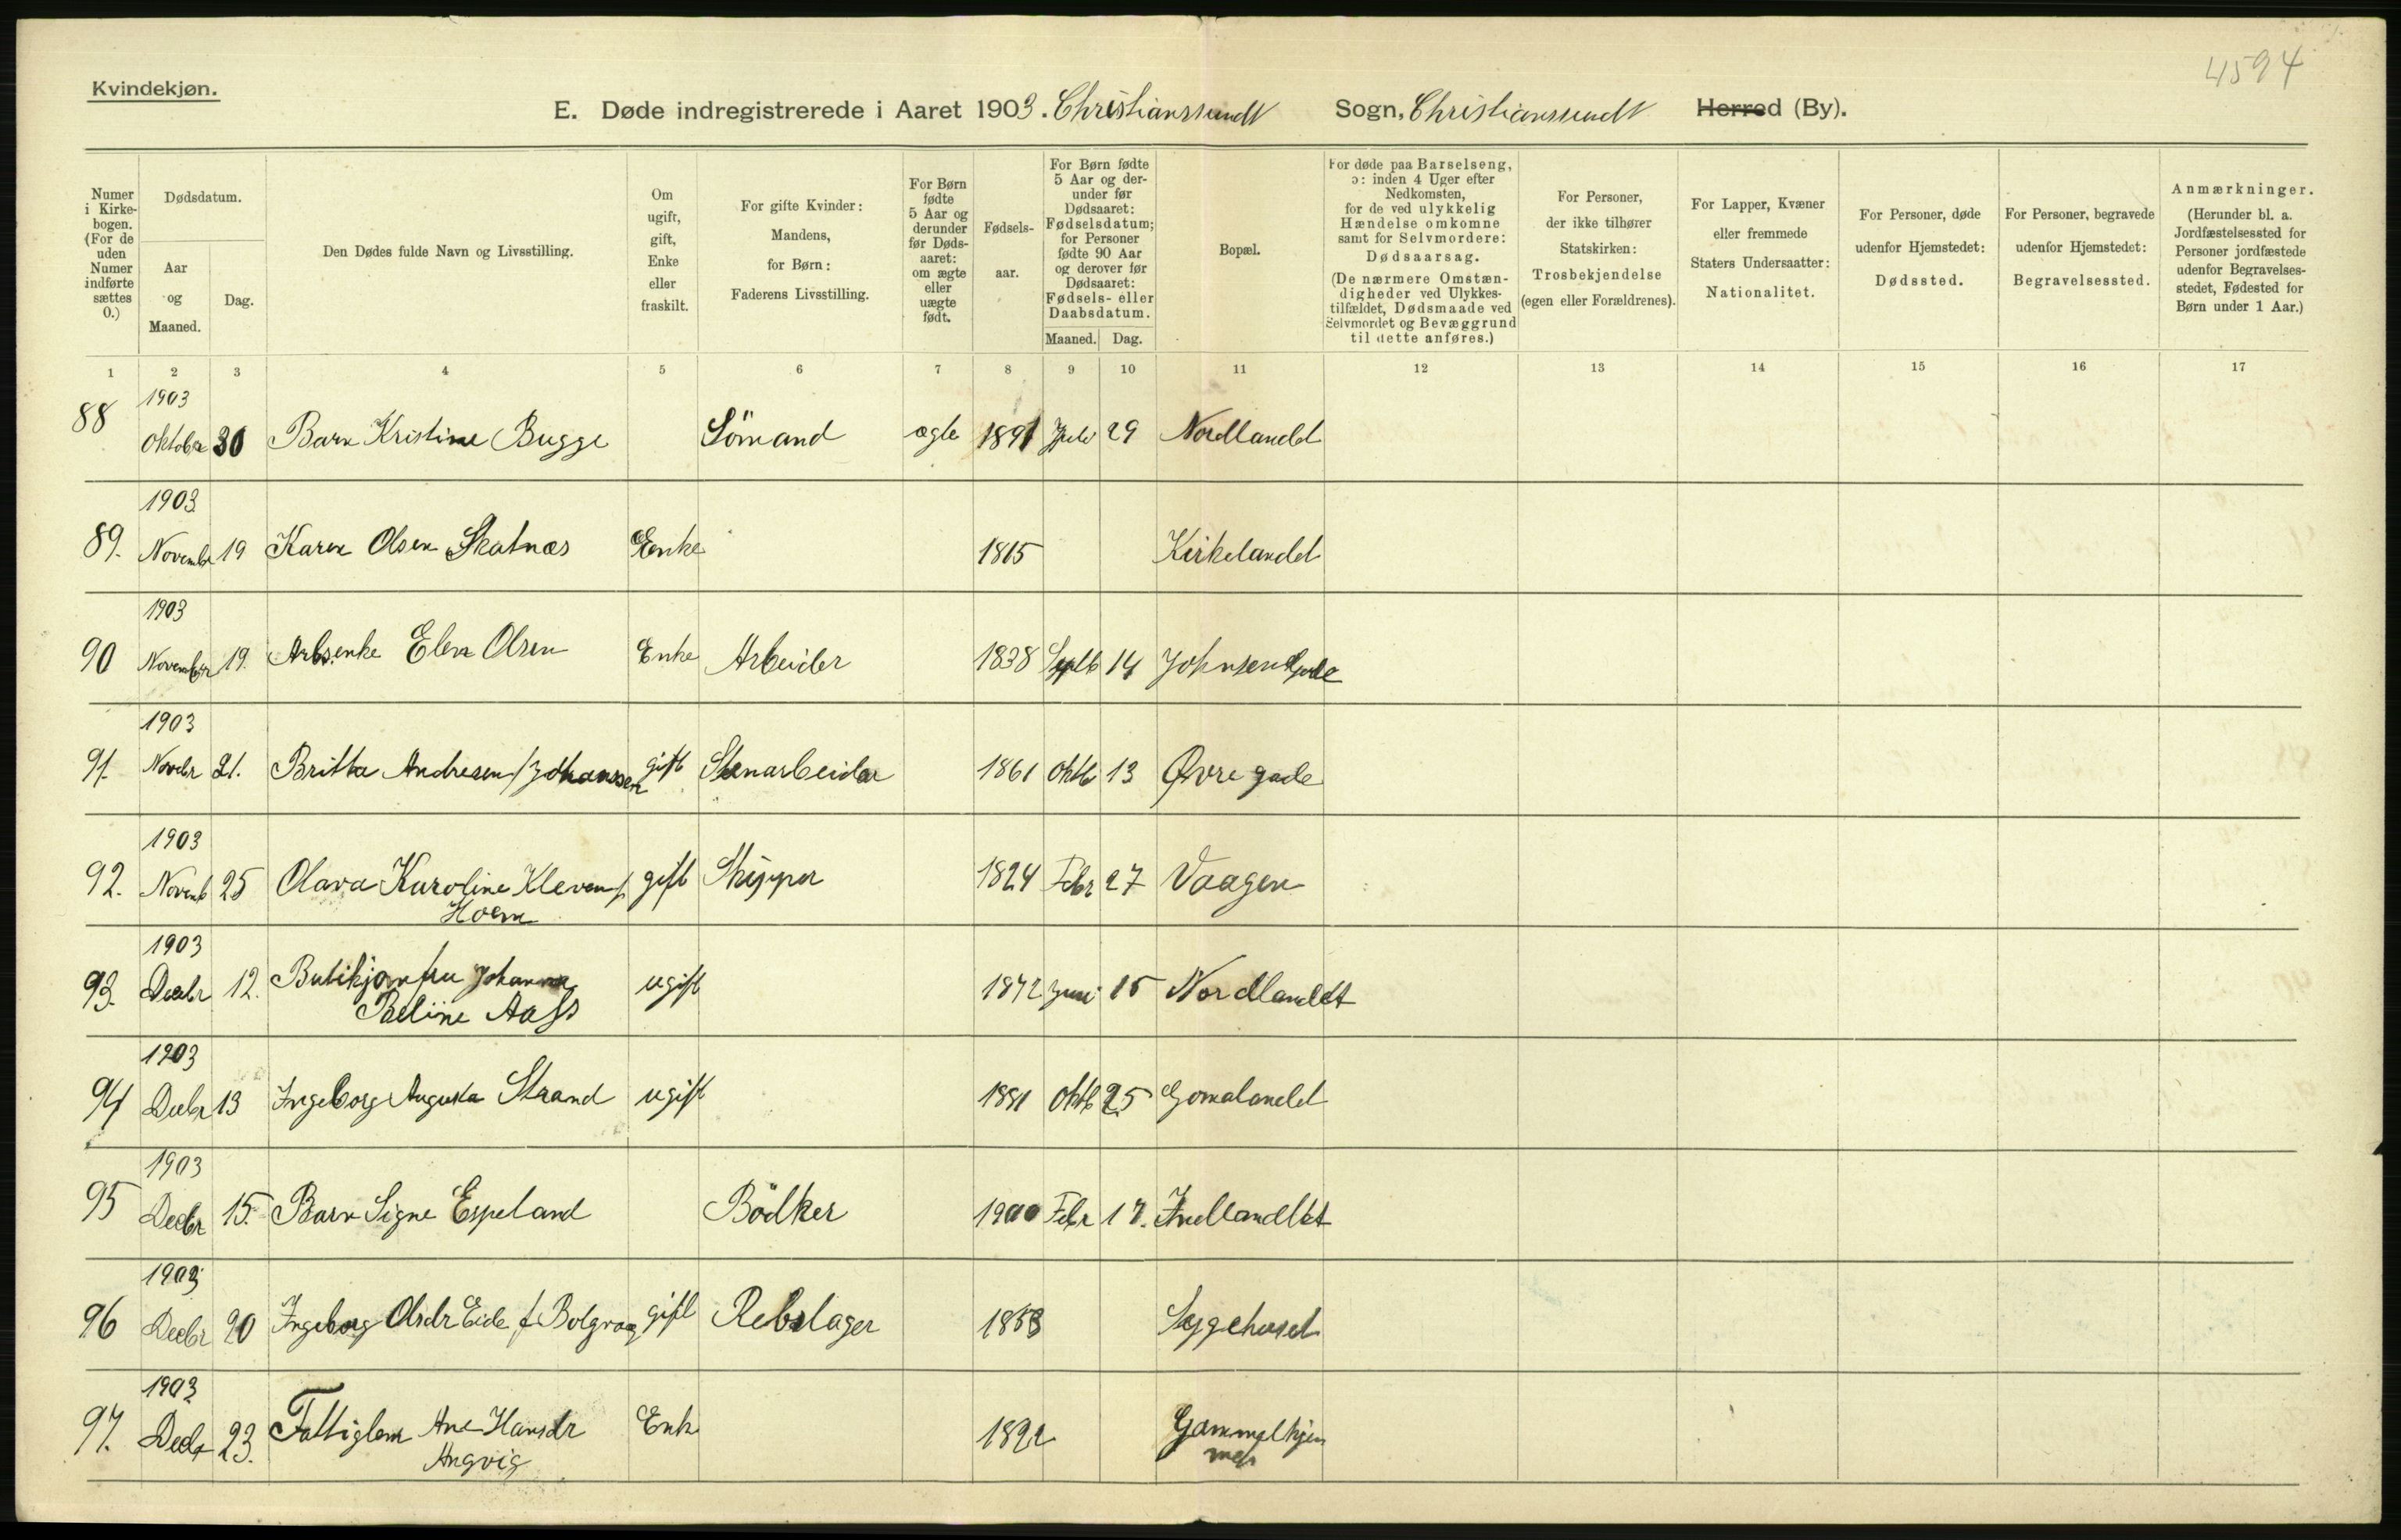 4594
Kvindekjøn.
E. Døde indregistrerede i Aaret 1903. Christianssundt Sogn, Christianssundt Herred (By).
Numer i Kirke-bogen. (For de uden Numer indførte sættes 0.)
Dødsdatum.
Aar og Maaned.
Dag.
Den Dødes fulde Navn og Livsstilling.
Om ugift, gift, Enke eller fraskilt.
For gifte Kvinder: Mandens, for Børn: Faderens Livsstilling.
For Børn fødte 5 Aar og derunder før Døds-aaret: om ægte eller uægte født.
Fødsels-aar.
For Børn fødte 5 Aar og der-under før Dødsaaret: Fødselsdatum; for Personer fødte 90 Aar og derover før Dødsaaret: Fødsels- eller Daabsdatum.
Maaned. Dag.
Bopæl.
For døde paa Barselseng, ɔ: inden 4 Uger efter Nedkomsten, for de ved ulykkelig Hændelse omkomne samt for Selvmordere: Dødsaarsag. (De nærmere Omstæn-digheder ved Ulykkes-tilfældet, Dødsmaade ved Selvmordet og Bevæggrund til dette anføres.)
For Personer, der ikke tilhører Statskirken: Trosbekjendelse (egen eller Forældrenes).
For Lapper, Kvæner eller fremmede Staters Undersaatter: Nationalitet.
For Personer, døde udenfor Hjemstedet: Dødssted.
For Personer, begravede udenfor Hjemstedet: Begravelsessted.
Anmærkninger. (Herunder bl. a. Jordfæstelsessted for Personer jordfæstede udenfor Begravelses-stedet, Fødested for Børn under 1 Aar.)
1 2 3 4 5 6 7 8 9 10 11 12 13 14 15 16 17
1903
88 Oktober 30 Barn Kristine Bugge Sömand ægte 1891 Juli 29 Nordlandet
1903
89. Novembr 19 Karen Olsen Skatnæs Enke 1815 Kirkelandet
1903
90 November 19. Arbs.enke Elen Olsen Enke Arbeider 1838 Septb 14 Johnsensgade
1903
91. Novbr 21. Britha Andresen f Johanssen gift Stenarbeider 1861 Oktb 13 Øvre gade
1903
92. Novemb 25 Olava Karoline Kleven f. gift Skipper 1824 Febr 27 Vaagen
Hoem
1903
93. Decbr 12. Butikjomfru Johanna ugift 1872 Juni 15 Nordlandet
Peline Aass
1903
94 Decbr 13 Ingeborg Augusta Strand ugift 1881 Oktb 25 Gomalandet
1903
95 Decbr 15. Barn Signe Espeland Bödker 1900 Febr 17. Indlandet
1903
96 Decbr 20 Ingeborg Olsdr Eide f Bolgvaag gift Rebslager 1853 Sygehuset
1903
97. Decbr 23. Fattiglem Ane Hansdr Enk 1822 Gammelhjem
Angvig